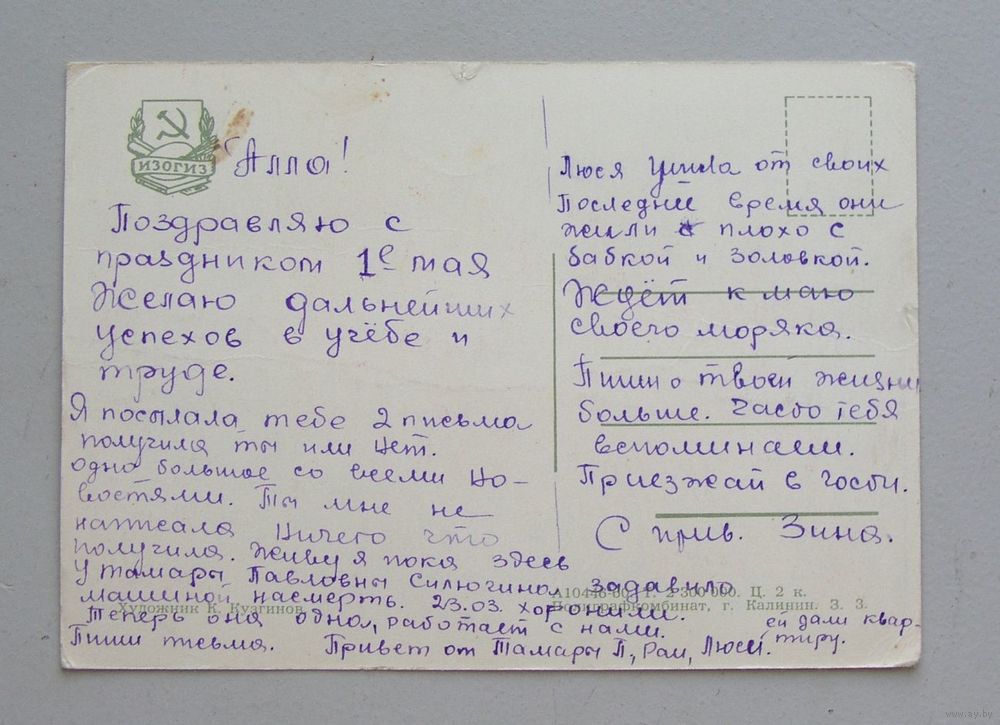 ИЗОГИЗ
Алла!
Поздравляю с
праздником 1е мая
Желаю дальнейших
успехов в учёбе и
труде.
Я посылала тебе 2 письма
получила ты или нет.
одно большое со всеми но-
востями. Ты мне не
написала ничего что
получила. Живу я пока здесь
У Тамары Павловны Силюгина задавило
машиной насмерть. 23.03. хоронили.
Теперь она одна, работает с нами. ей дали квар-
тиру.
Пиши письма. Привет от Тамары П, Раи, Люси.
Люся ушла от своих
Последнее время они
жили плохо с
бабкой и золовкой.
Ждёт к маю
своего моряка.
Пиши о твоей жизни
больше. Часто тебя
вспоминаем.
Приезжай в гости.
С прив. Зина.
Художник К. Кузгинов
2 300 000. Ц. 2 к.
Полиграфкомбинат, г. Калинин. З. 3.
www.ay.by